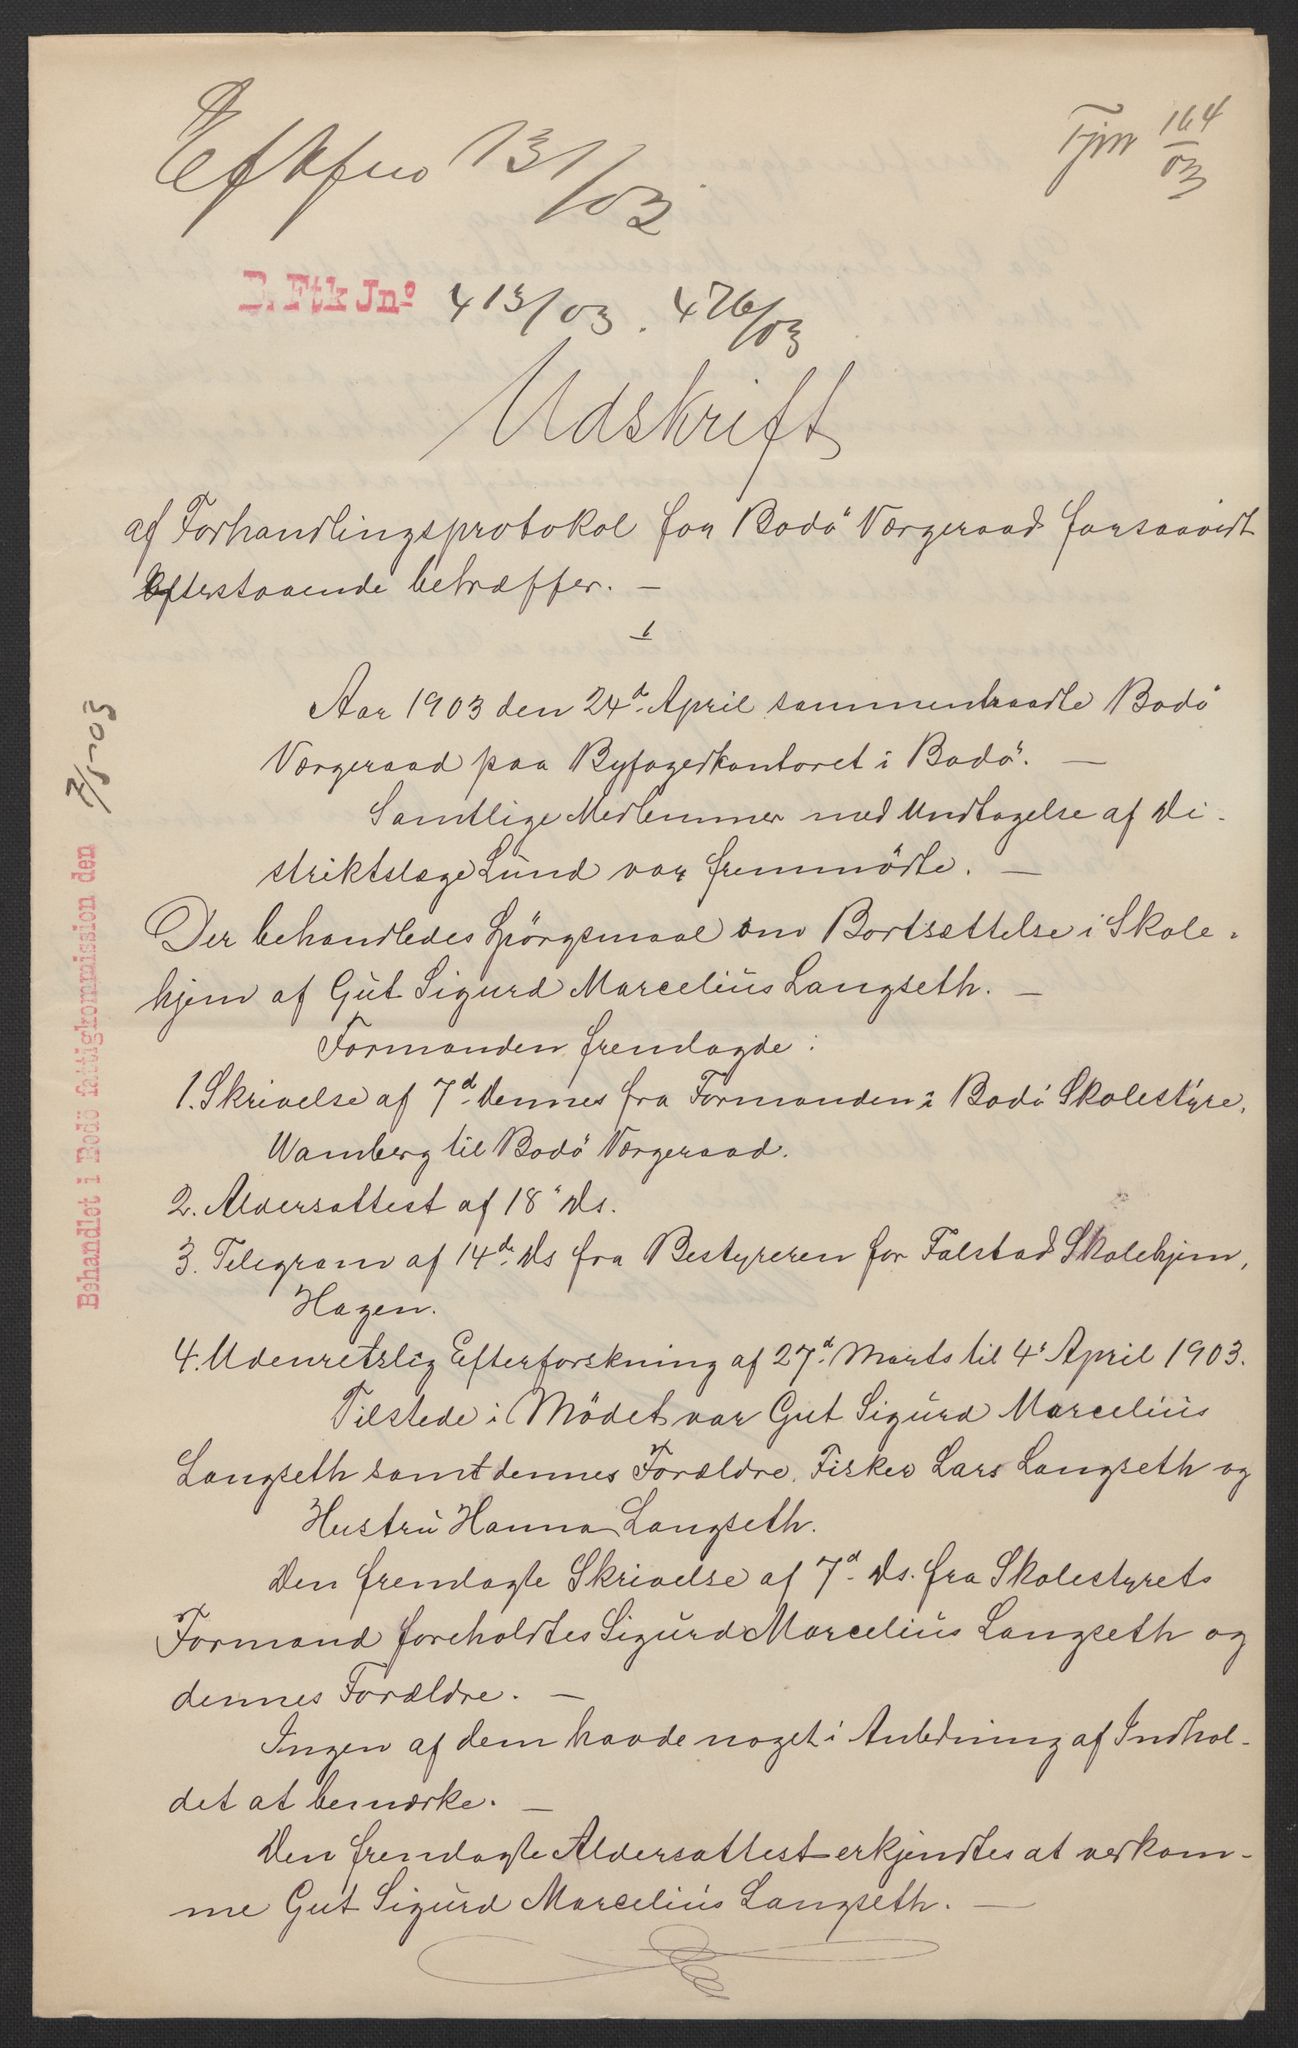 131/03
164/03
B. Ftk Jnº 413/03. 476/03
Udskrift
af Forhandlingsprotokol for Bodö Værgeraad forsaavidt
Efterstaaende betræffer. —
Aar 1903 den 24d. April sammentraadte Bodö
Værgeraad paa Byfogedkontoret i Bodö. —
Samtlige Medlemmer med Undtagelse af Di-
striktslæge Lund var fremmödte. —
Der behandledes Spörgsmaal om Bortsættelse i Skole-
hjem af Gut Sigurd Marcelius Langseth. —
Formanden fremlagde:
1. Skrivelse af 7d. dennes fra Formanden i Bodö Skolestyre,
Wamberg til Bodö Værgeraad.
2. Aldersattest af 18' ds.
3. Telegram af 14de. ds fra Bestyreren for Falstad Skolehjem,
Hagen.
4. Udenretslig Efterforskning af 27d. Marts til 4' April 1903.
Tilstede i Mödet var Gut Sigurd Marcelius
Langseth samt dennes Forældre, Fisker Lars Langseth og
Hustru Hanna Langseth.
Den fremlagte Skrivelse af 7d. ds. fra Skolestyrets
Formand foreholdtes Sigurd Marcelius Langseth og
dennes Forældre. —
Ingen af dem havde noget i Anledning af Indhol-
det at bemærke. —
Den fremlagte Aldersattest erkjendtes at vedkom-
me Gut Sigurd Marcelius Langseth. —
Behandlet i Bodö fattigkommission den 7/5-03